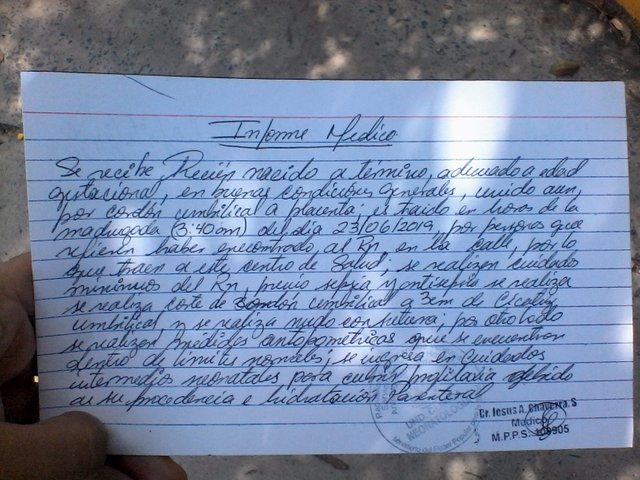 Informe Medico
Se recibe Recien nacido a término, adecuado a edad
gestacional, en buenas condiciones generales, unido aun,
por cordón umbilical a placenta; es traido en horas de la
madrugada (3:40am) del dia 23/06/2019, por personas que
refieren haber encontrado al Rn, en la calle, por lo
que traen a este centro de Salud; se realizan cuidados
minimos del Rn, previo asepsia y antisepsia se realiza
se realiza corte de cordón umbilical a 3cm de
umbilical, y se realiza nudo con sutura; por otro lado
se realizan medidas antopometricas que se encuentran
dentro de limites normales; se ingresa en Cuidados
intermedios neonatales para cubrir profilaxia debido
a su procedencia e hidratación Parenteral
UNID. C
NEONATOLOG
Ministerio del Poder Popular
Dr. Jesus A. Chaverra. S
Medico
M.P.P.S. 109905